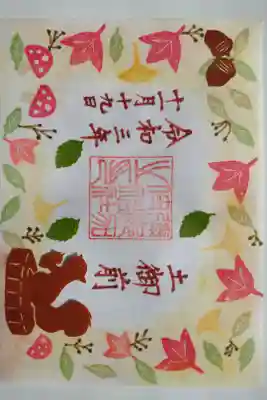 土御前
令和三年
十一月十九日